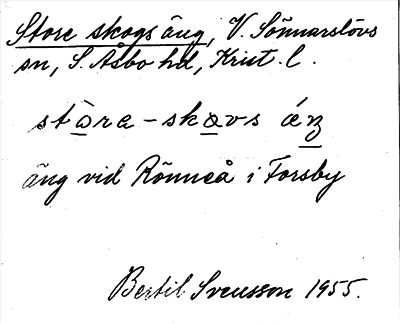 Store skogs äng, V. Sönnarslövs
sn, S. Åsbo hd, Krist. l.
stòra - skavs áŋ
äng vid Rönneå i Forsby
Bertil Svensson 1955.